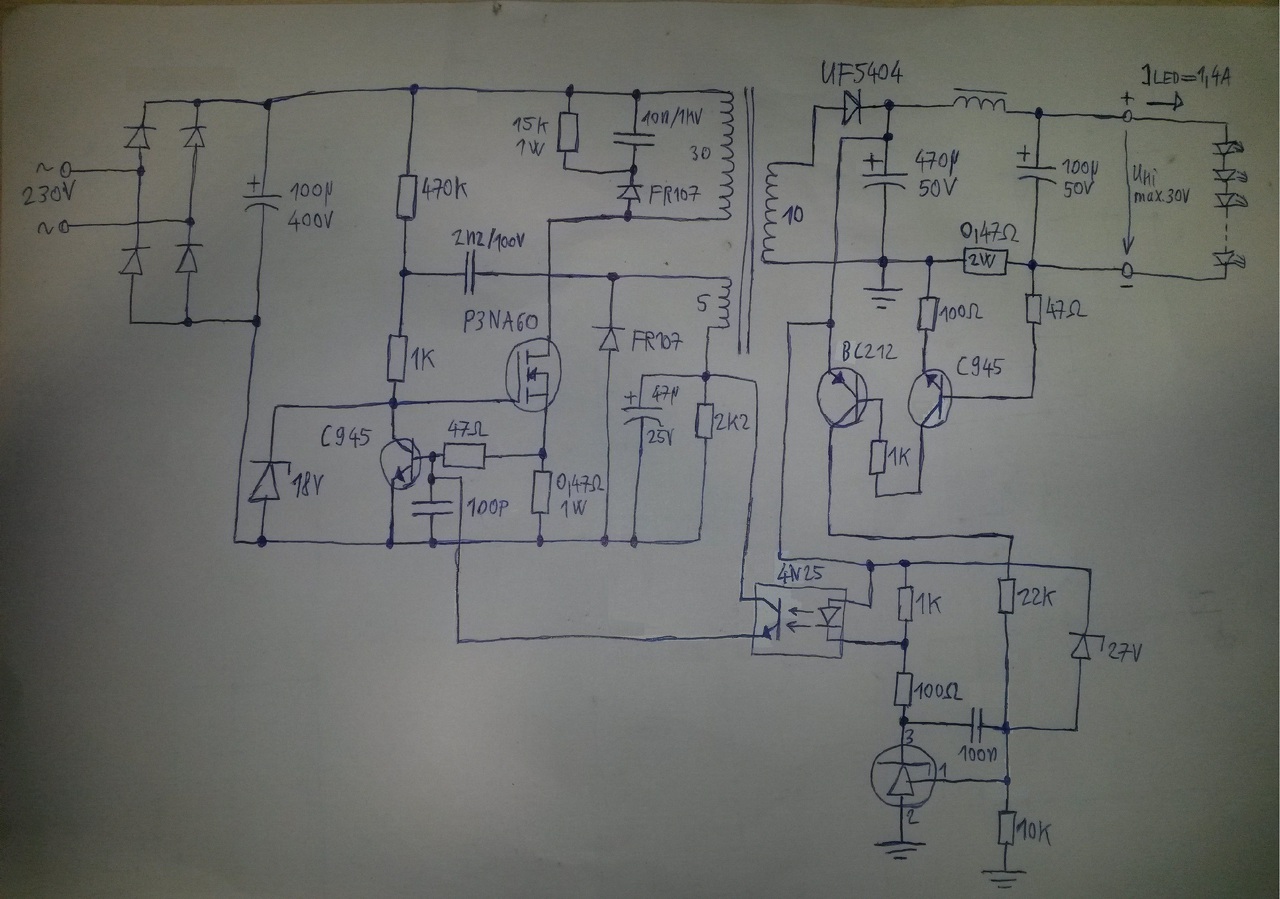 UF5404
ILED=1,4A
+
15K
1W
10n/1KV
30
~
230V
~
+
100µ
400V
470K
FR107
10
+
470µ
50V
+
100µ
50V
max.30V
0,47Ω
2W
-
2n2/100V
P3NA60
5
FR107
1K
100Ω
47Ω
BC212
C945
+
47µ
25V
2K2
C945
47Ω
18V
100p
0,47Ω
1W
1K
4N25
1K
22K
27V
100Ω
100n
3
1
2
10K